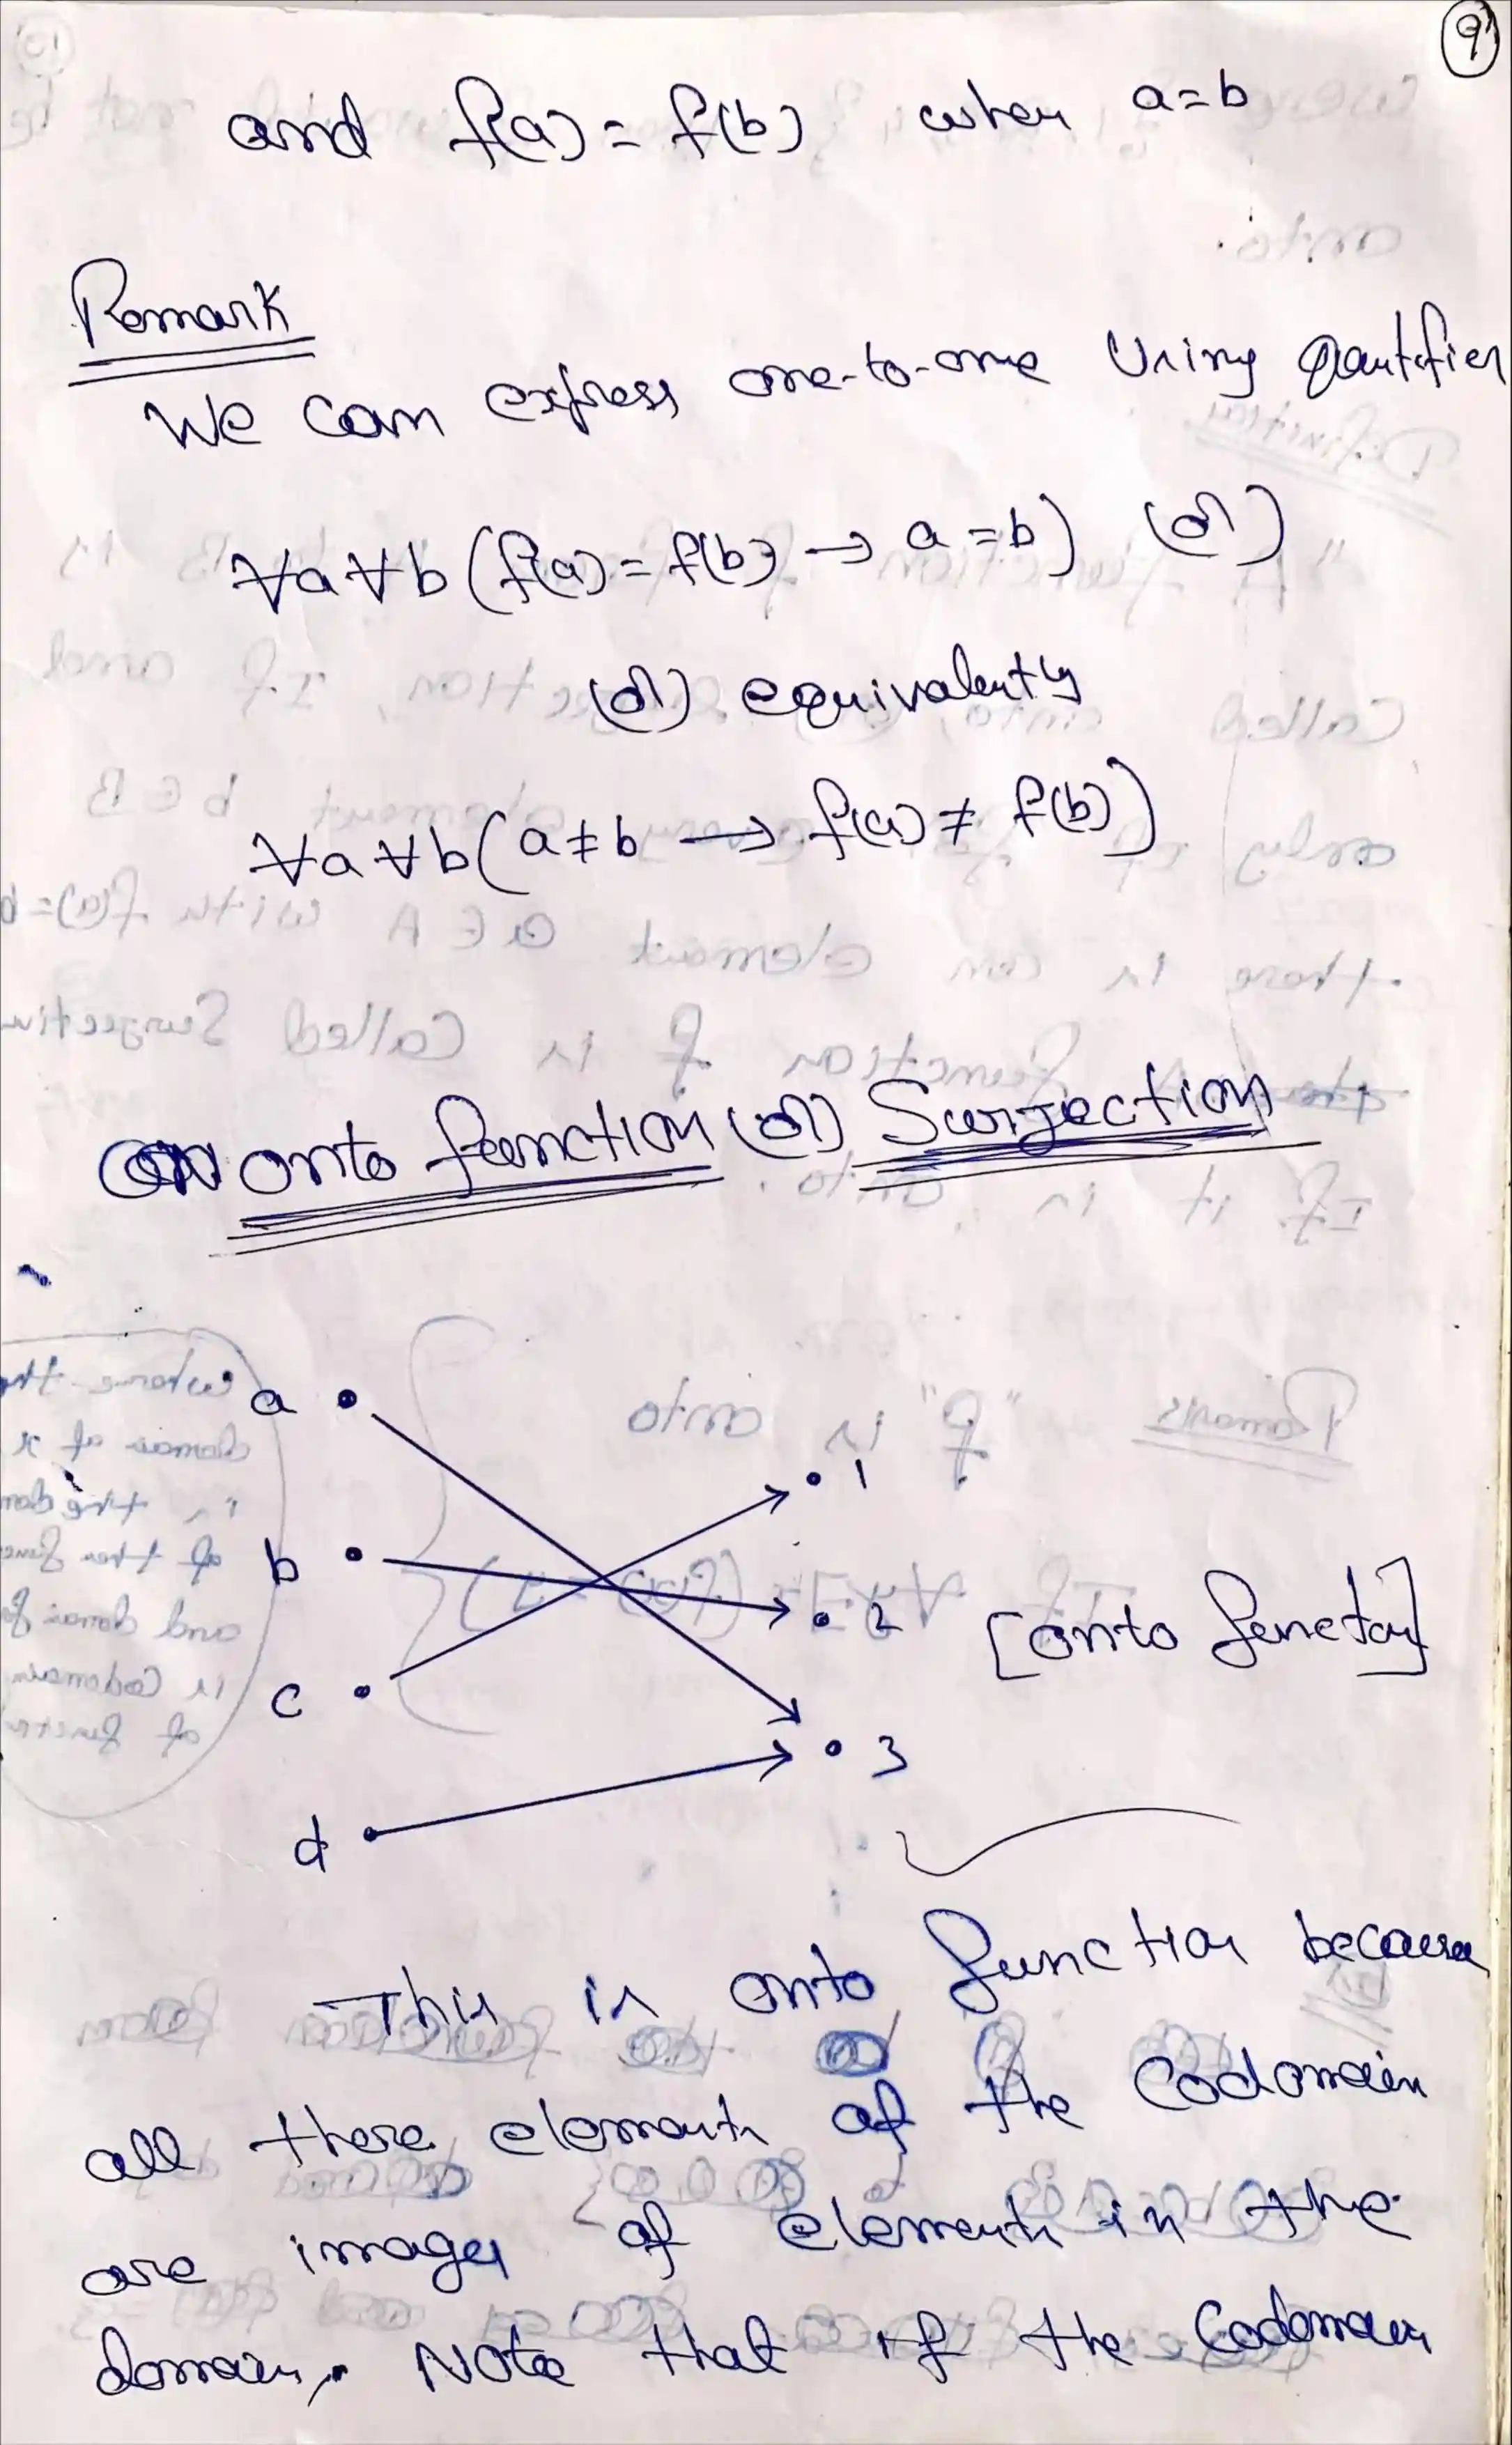 9
and f(a) = f(b) when a=b
Remark
We can express one-to-one Using
∀a∀b (f(a) = f(b) → a = b) (or)
(or) equivalently
∀a∀b (a≠b → f(a) ≠ f(b))
onto function (or) Surjection
a
1
b
2 [onto function]
c
3
d
This is onto function because
all three elements of the Codomain
are images of elements in the
domain. Note that if the Codomain